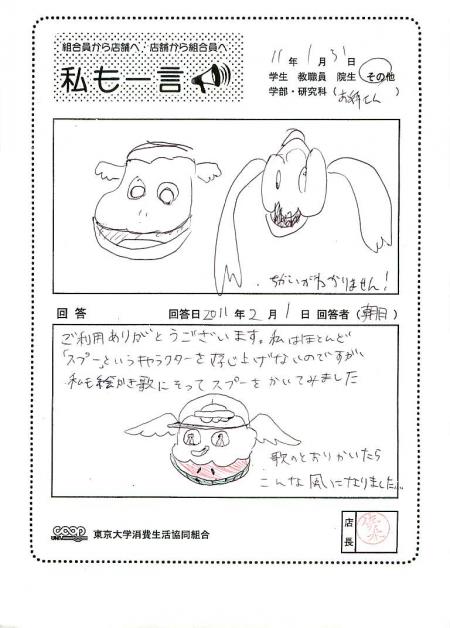 組合員から店舗へ 店舗から組合員へ
私も一言
11年 1月 31日
学生 教職員 院生 その他
学部・研究科(お姉さん)
ちがいがわかりません!
回答 回答日 2011年 2月 1日 回答者(朝日)
ご利用ありがとうございます。私はほとんど
「スプー」というキャラクターを存じ上げないのですが
私も絵かき歌にそってスプーをかいてみました
歌のとおりかいたら
こんな風になりました…
店長
UNIV. COOP 東京大学消費生活協同組合